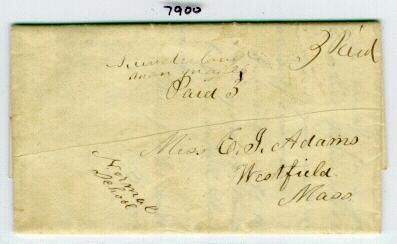 7900
3 Paid
Sunderland
Paid 3
Miss E. J. Adams
Westfield
Mass.
Normal
School